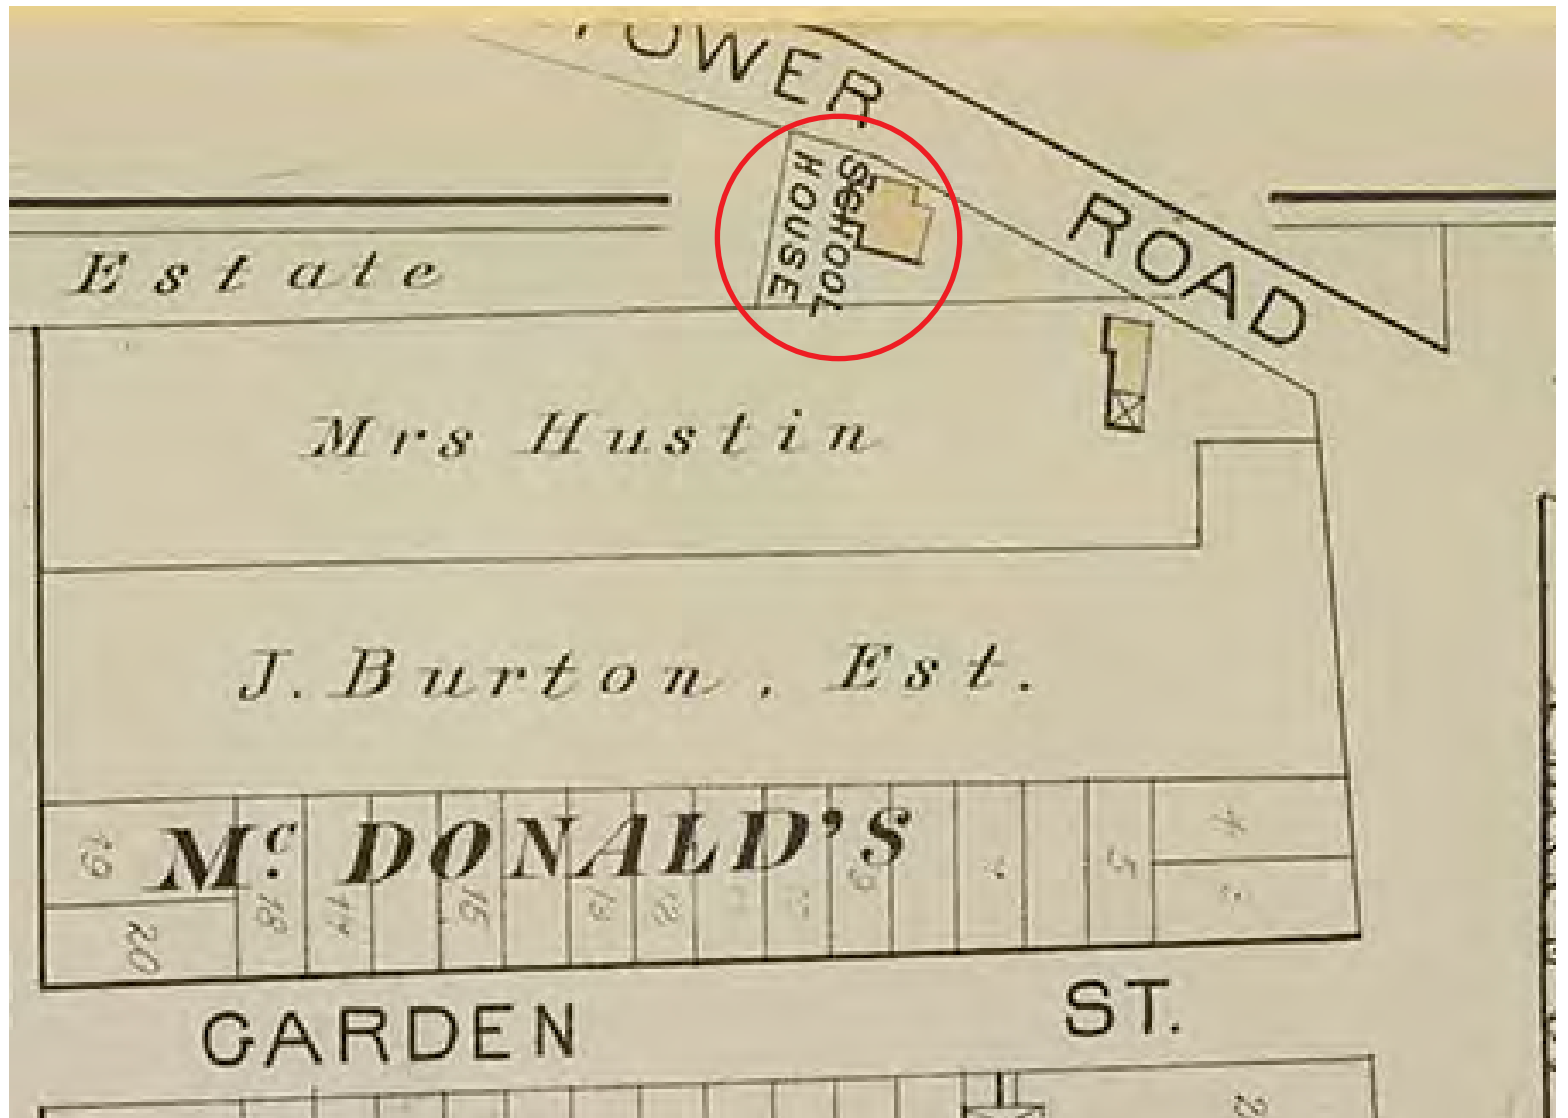 TOWER ROAD
SCHOOL
HOUSE
Estate
Mrs Hustin
J. Burton. Est.
Mc. DONALD'S
19
18
17
15
13
12
4
5
20
GARDEN ST.
2